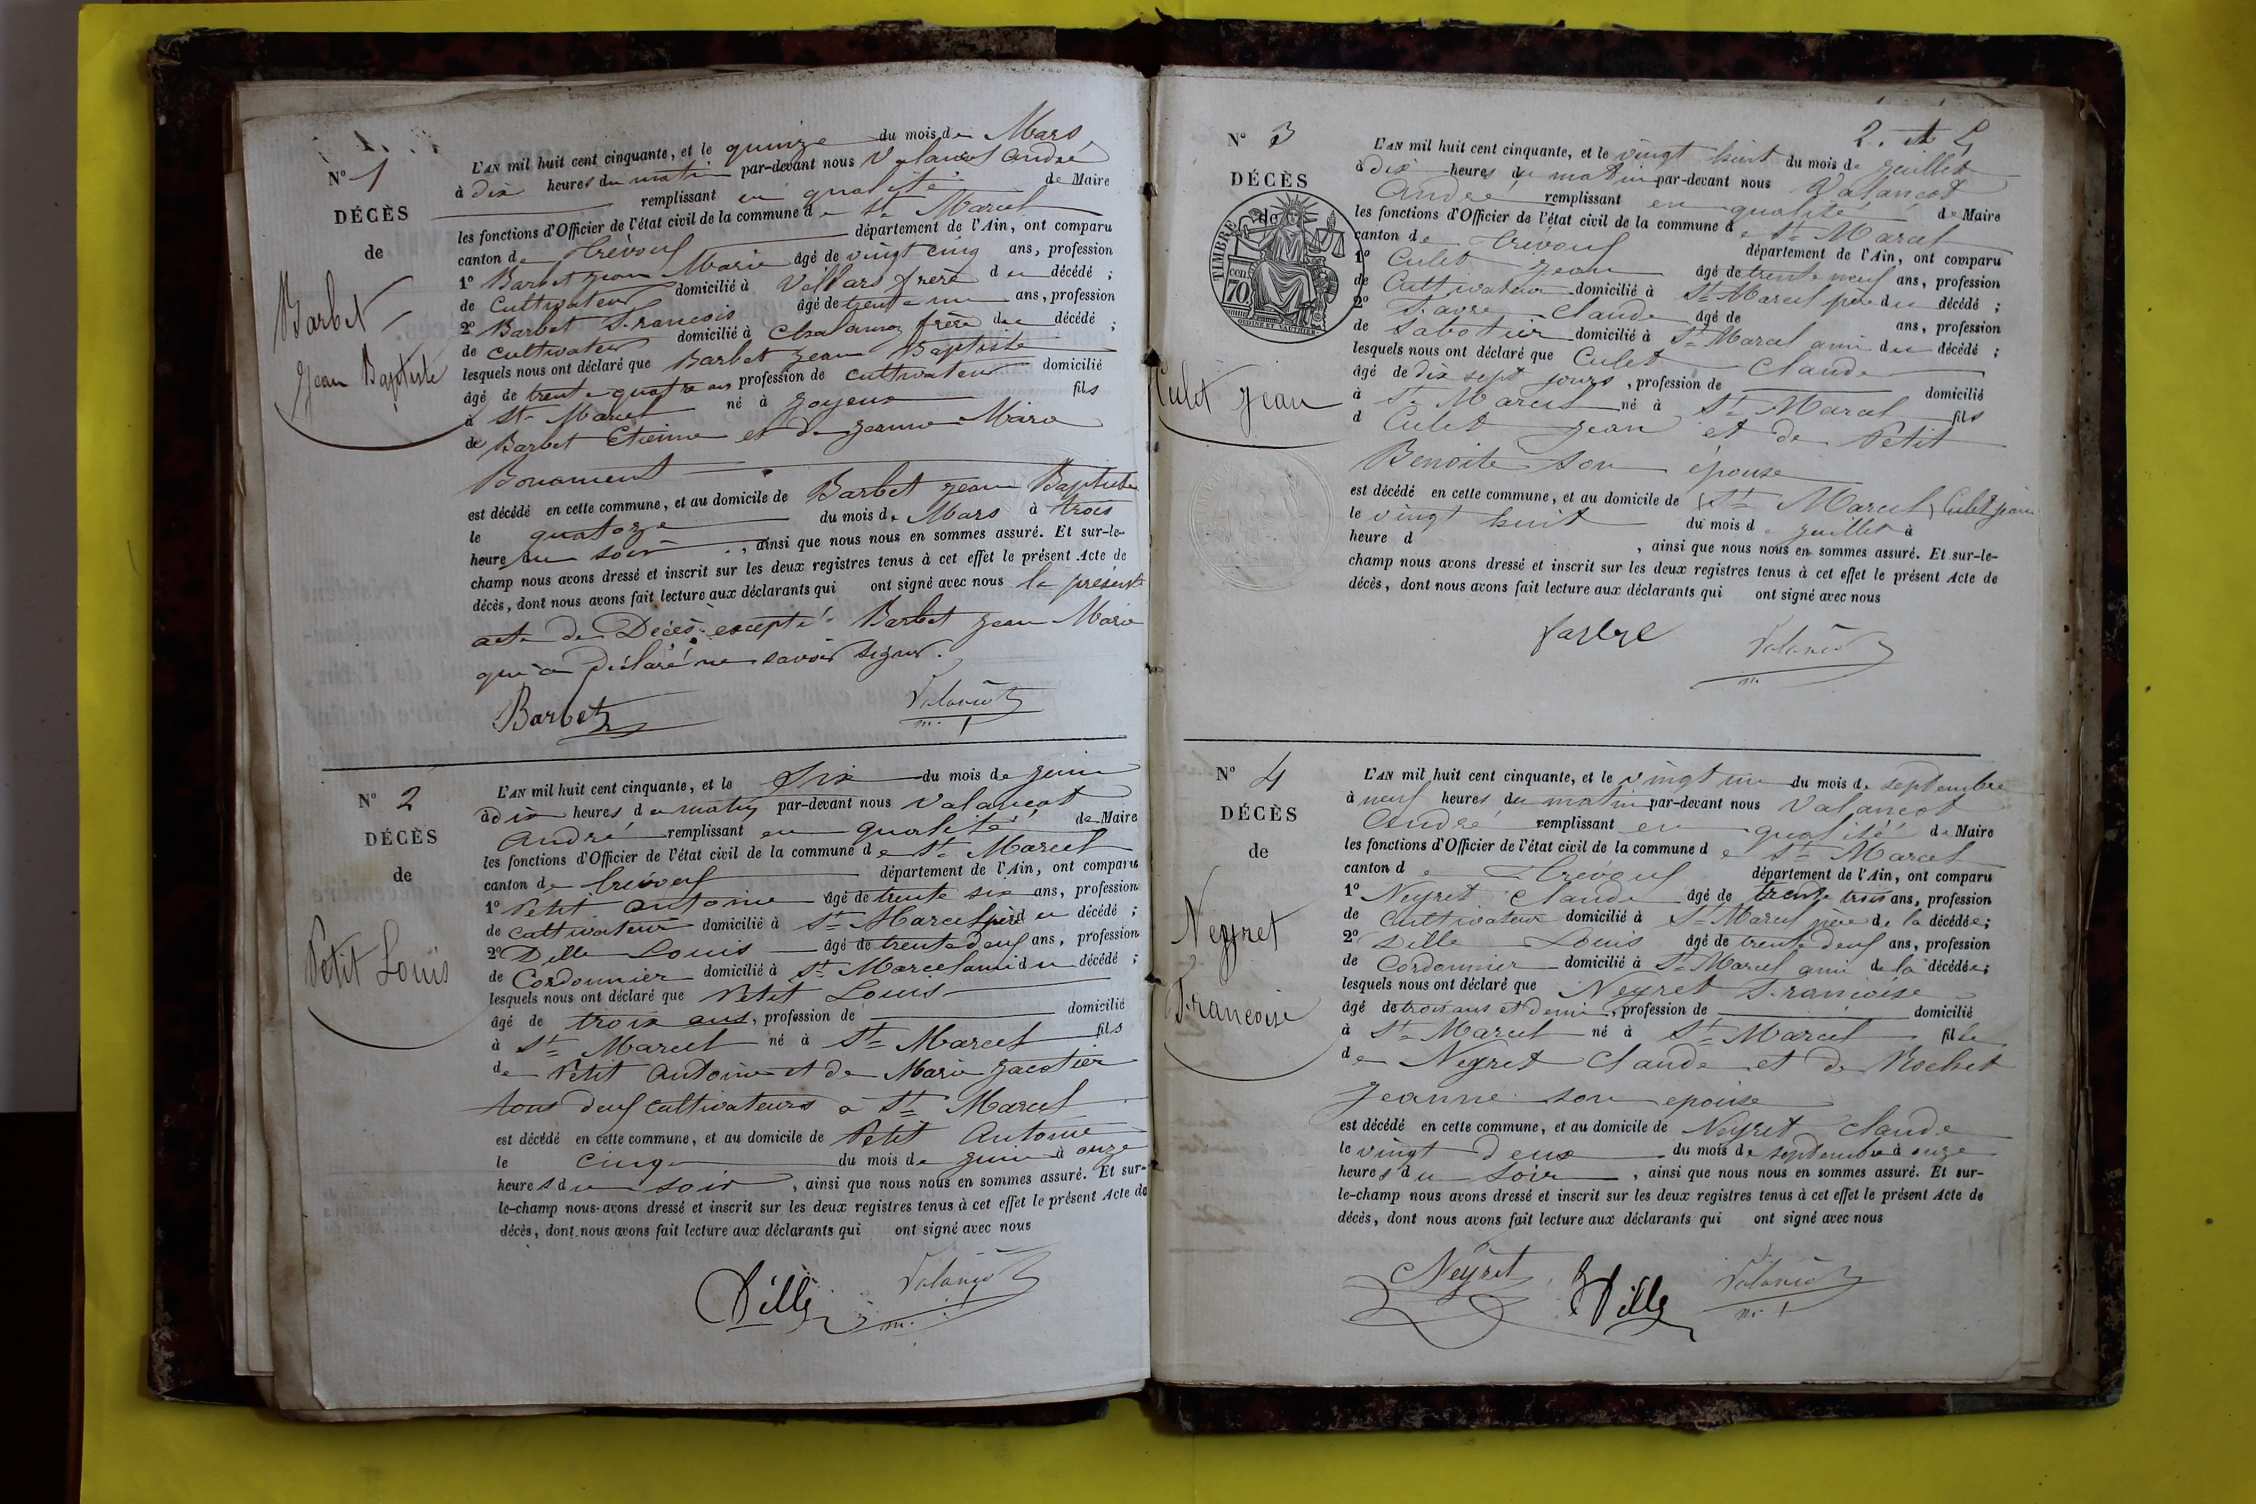 N° 1
DÉCÈS
de
Barbet
Jean Baptiste
L'AN mil huit cent cinquante, et le quinze du mois de Mars
à dix heures du matin par-devant nous Valancot André
remplissant en qualité de Maire
les fonctions d'Officier de l'état civil de la commune de St Marcel
canton de Trévoux département de l'Ain, ont comparu
1° Barbet Jean Marie âgé de vingt cinq ans, profession
de Cultivateur domicilié à Villars frère du décédé ;
2° Barbet Francois âgé de trente un ans, profession
de cultivateur domicilié à frère du décédé ;
lesquels nous ont déclaré que Barbet Jean Baptiste
âgé de trente quatre ans profession de cultivateur domicilié
à St Marcel né à Joyeux fils
de Barbet Etienne et de Jeanne Marie
Bonament
est décédé en cette commune, et au domicile de Barbet Jean Baptiste
le quatorze du mois de Mars à trois
heure du soir, ainsi que nous nous en sommes assuré. Et sur-le-
champ nous avons dressé et inscrit sur les deux registres tenus à cet effet le présent Acte de
décès, dont nous avons fait lecture aux déclarants qui ont signé avec nous le présent
acte de Décès excepté Barbet Jean Marie
qui a déclaré ne savoir signer.
Barbet Valancot
N° 2
DÉCÈS
de
Petit Louis
L'AN mil huit cent cinquante, et le Six du mois de Juin
à dix heures du matin par-devant nous Valancot
André remplissant en qualité de Maire
les fonctions d'Officier de l'état civil de la commune de St Marcel
canton de Trévoux département de l'Ain, ont comparu
1° Petit Antoine âgé de trente six ans, profession
de cultivateur domicilié à St Marcel père du décédé ;
2° Dille Louis âgé de trente deux ans, profession
de Cordonnier domicilié à St Marcel ami du décédé ;
lesquels nous ont déclaré que Petit Louis
âgé de trois ans, profession de domicilié
à St Marcel né à St Marcel fils
de Petit Antoine et de Marie Jacotier
tous deux cultivateurs à St Marcel
est décédé en cette commune, et au domicile de Petit Antoine
le cinq du mois de Juin à onze
heures du soir, ainsi que nous nous en sommes assuré. Et sur-
le-champ nous avons dressé et inscrit sur les deux registres tenus à cet effet le présent Acte de
décès, dont nous avons fait lecture aux déclarants qui ont signé avec nous
Dille Valancot
N° 3
DÉCÈS
de
TIMBRE
cen
70
Culet Jean
L'AN mil huit cent cinquante, et le vingt huit du mois de Juillet
à dix heures du matin par-devant nous Valancot
André remplissant en qualité de Maire
les fonctions d'Officier de l'état civil de la commune de St Marcel
canton de Trévoux département de l'Ain, ont comparu
1° Culet Jean âgé de trente neuf ans, profession
de Cultivateur domicilié à St Marcel père du décédé ;
2° Favre Claude âgé de ans, profession
de Sabotier domicilié à St Marcel ami du décédé ;
lesquels nous ont déclaré que Culet Claude
âgé de dix sept jours, profession de domicilié
à St Marcel né à St Marcel fils
d Culet Jean et de Petit
Benoite son épouse
est décédé en cette commune, et au domicile de St Marcel Culet Jean
le vingt huit du mois d Juillet à
heure d , ainsi que nous nous en sommes assuré. Et sur-le-
champ nous avons dressé et inscrit sur les deux registres tenus à cet effet le présent Acte de
décès, dont nous avons fait lecture aux déclarants qui ont signé avec nous
Valancot
N° 4
DÉCÈS
de
Neyret
Francoise
L'AN mil huit cent cinquante, et le vingt un du mois de septembre
à neuf heures du matin par-devant nous Valancot
André remplissant en qualité de Maire
les fonctions d'Officier de l'état civil de la commune de St Marcel
canton de Trévoux département de l'Ain, ont comparu
1° Neyret Claude âgé de trente trois ans, profession
de Cultivateur domicilié à St Marcel père de la décédée;
2° Dille Louis âgé de trente deux ans, profession
de Cordonnier domicilié à St Marcel ami de la décédée;
lesquels nous ont déclaré que Neyret Francoise
âgé de trois ans et demi, profession de domicilié
à St Marcel né à St Marcel fille
de Neyret Claude et de Rochet
Jeanne son epouse
est décédé en cette commune, et au domicile de Neyret Claude
le vingt deux du mois de septembre à onze
heures du soir, ainsi que nous nous en sommes assuré. Et sur-
le-champ nous avons dressé et inscrit sur les deux registres tenus à cet effet le présent Acte de
décès, dont nous avons fait lecture aux déclarants qui ont signé avec nous
Neyret Dille Valancot